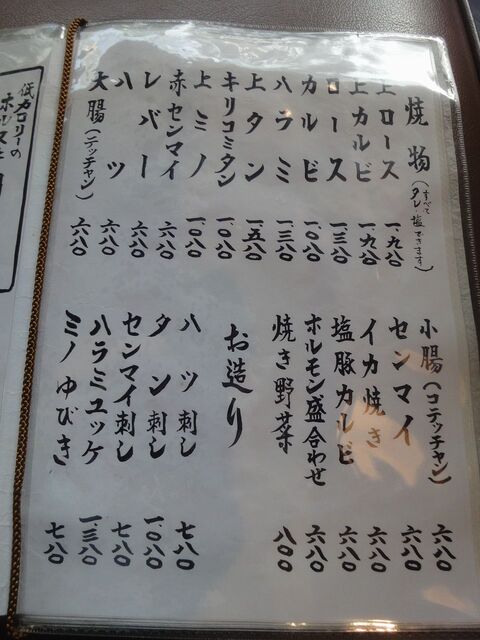 焼物(すべてタレ塩できます)
上ロース 一、九八〇
上カルビ 一、九八〇
ロース 一、三八〇
カルビ 一、〇八〇
ハラミ 一、三八〇
上タン 一、五八〇
キリコミタン 一、〇八〇
上ミノ 一、〇八〇
赤センマイ 六八〇
レバー 六八〇
ハツ 六八〇
大腸(テッチャン) 六八〇
小腸(コテッチャン) 六八〇
センマイ 六八〇
イカ焼き 六八〇
塩豚カルビ 六八〇
ホルモン盛合わせ 六八〇
焼き野菜 八〇〇
お造り
ハツ刺し 七八〇
タン刺し 一、〇八〇
センマイ刺し 七八〇
ハラミユッケ 一、三八〇
ミノゆびき 七八〇
低カロリーの